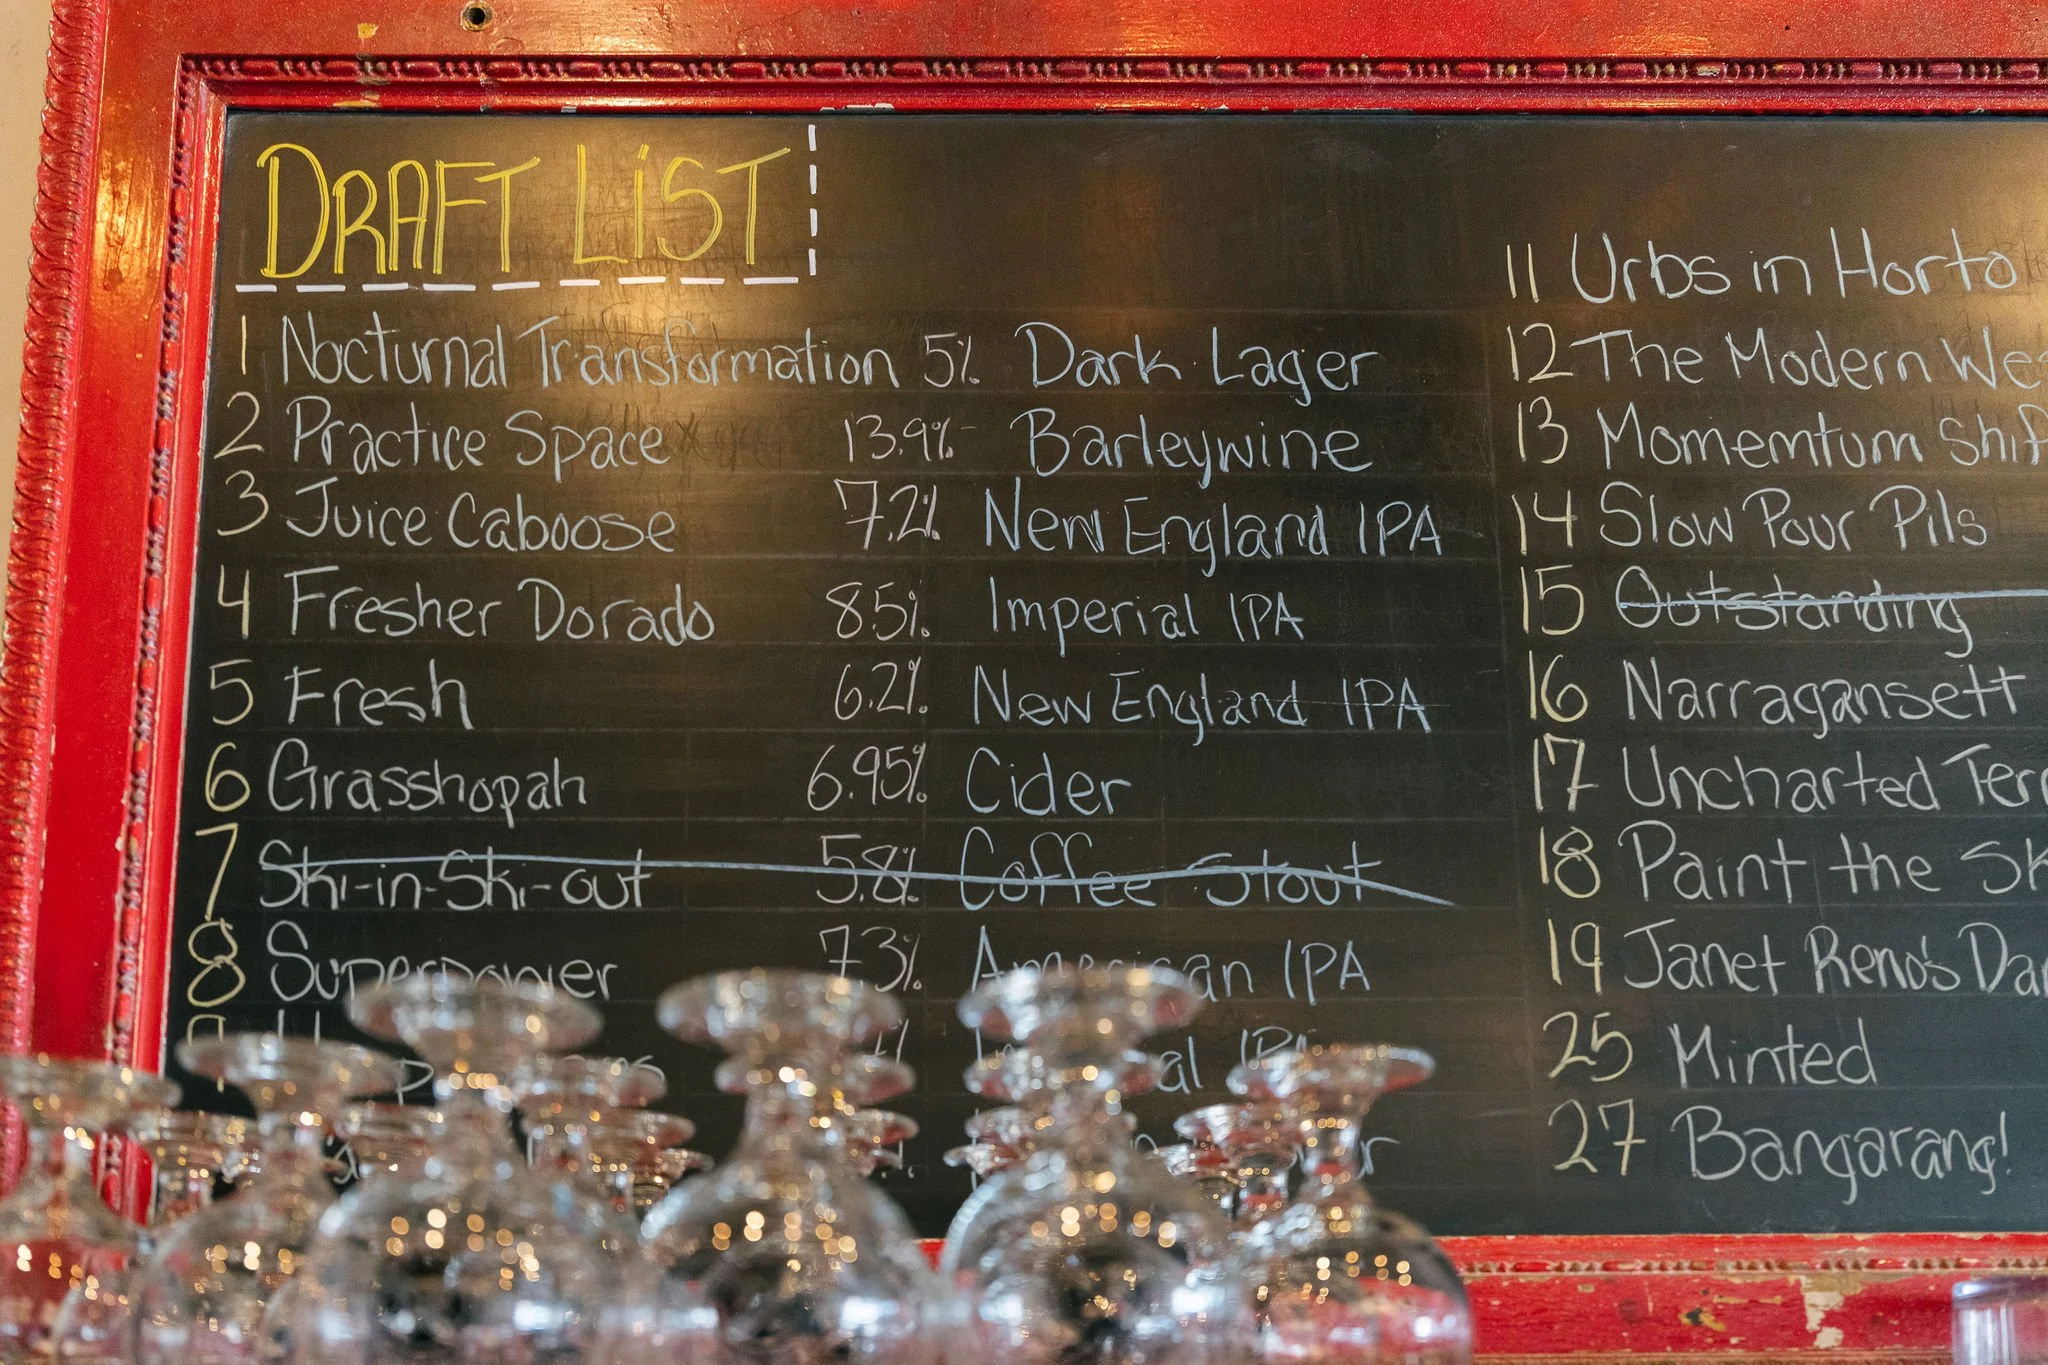 DRAFT LIST
1 Nocturnal Transformation 5% Dark Lager
2 Practice Space 13.9% Barleywine
3 Juice Caboose 7.2% New England IPA
4 Fresher Dorado 8.5% Imperial IPA
5 Fresh 6.2% New England IPA
6 Grasshopah 6.95% Cider
7 Ski-in-Ski-out 5.8% Coffee Stout
8 Superpower 7.3% American IPA
9 IPA
11 Urbs in Horto
12 The Modern We
13 Momemtum Shif
14 Slow Pour Pils
15 Outstanding
16 Narragansett
17 Uncharted Terr
18 Paint the Sk
19 Janet Reno's Dan
25 Minted
27 Bangarang!